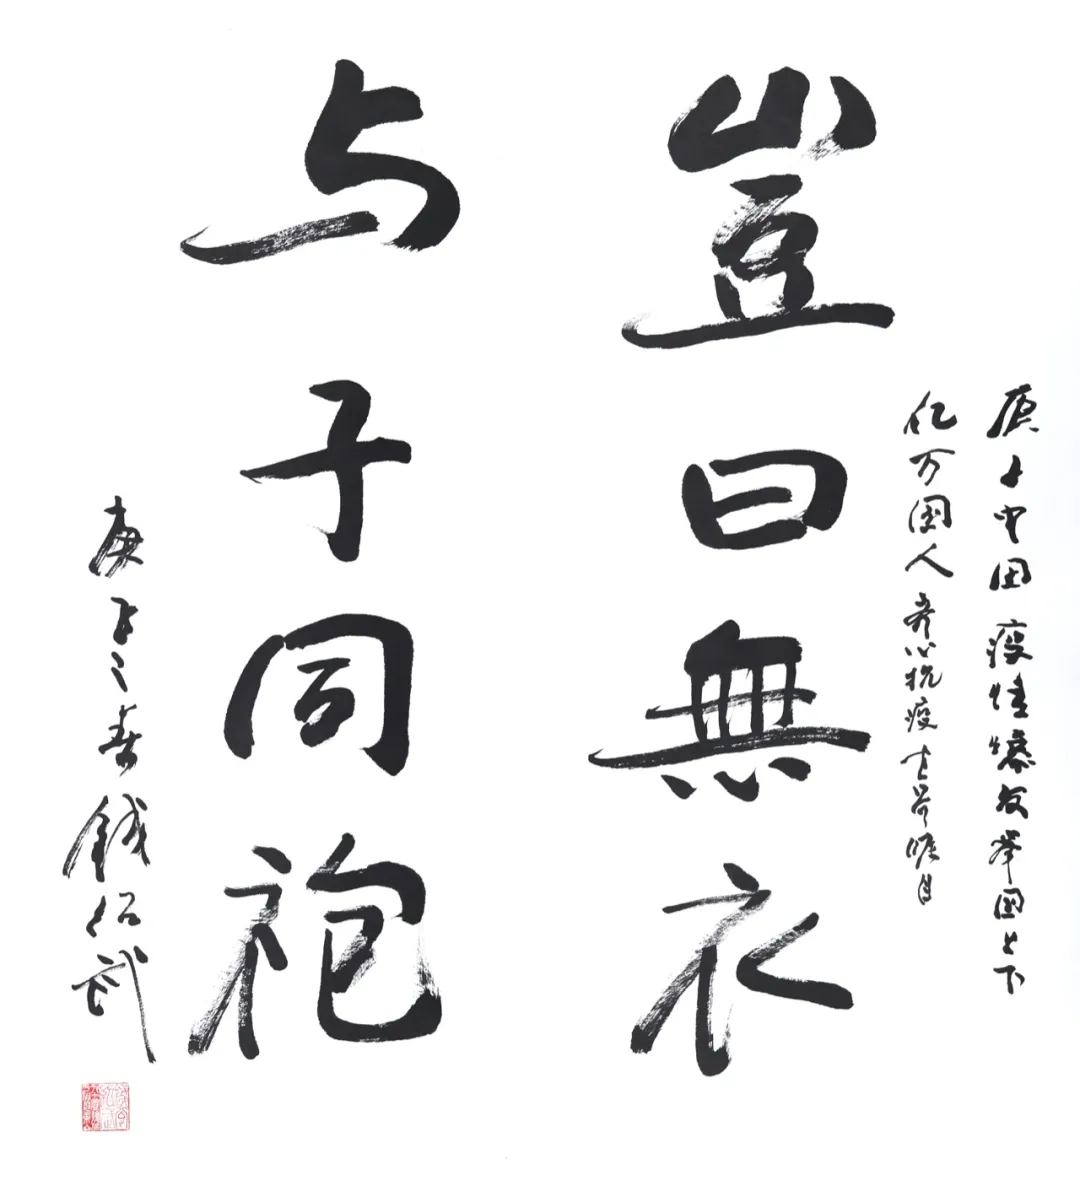 庚子中国疫情爆发举国上下
亿万国人齐心抗疫
豈曰無衣
与子同袍
庚子之春 钱绍武